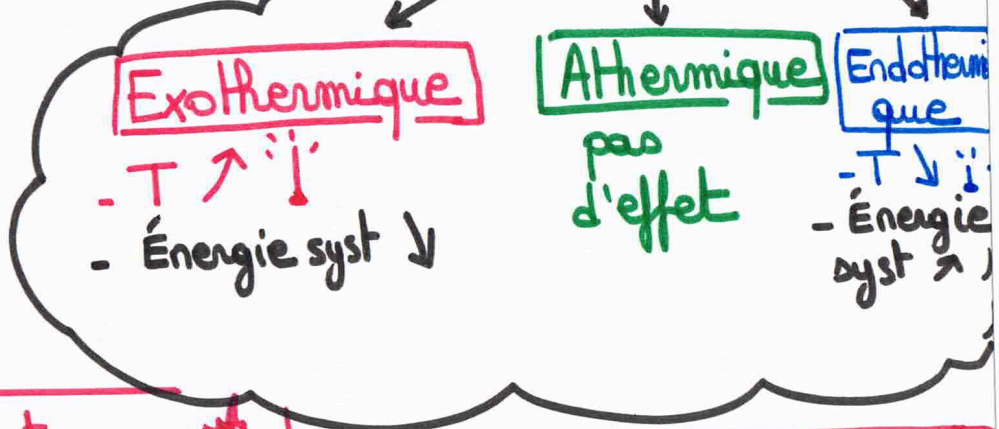 Exothermique
- T ↗
- Énergie syst ↘
Athermique
pas
d'effet
Endothermi
que
- T ↘
- Énergie
syst ↗